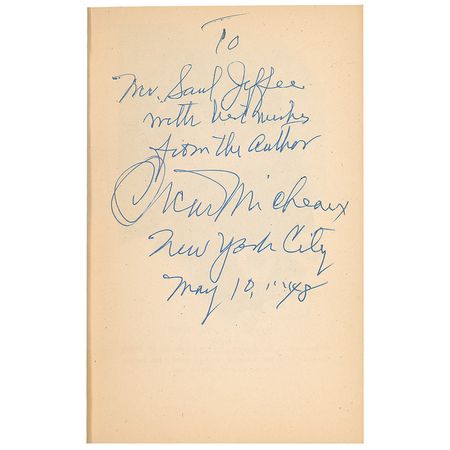 To
Mr. Saul Jeffee
with best wishes
from the author
Oscar Micheaux
New York City
May 10, '48